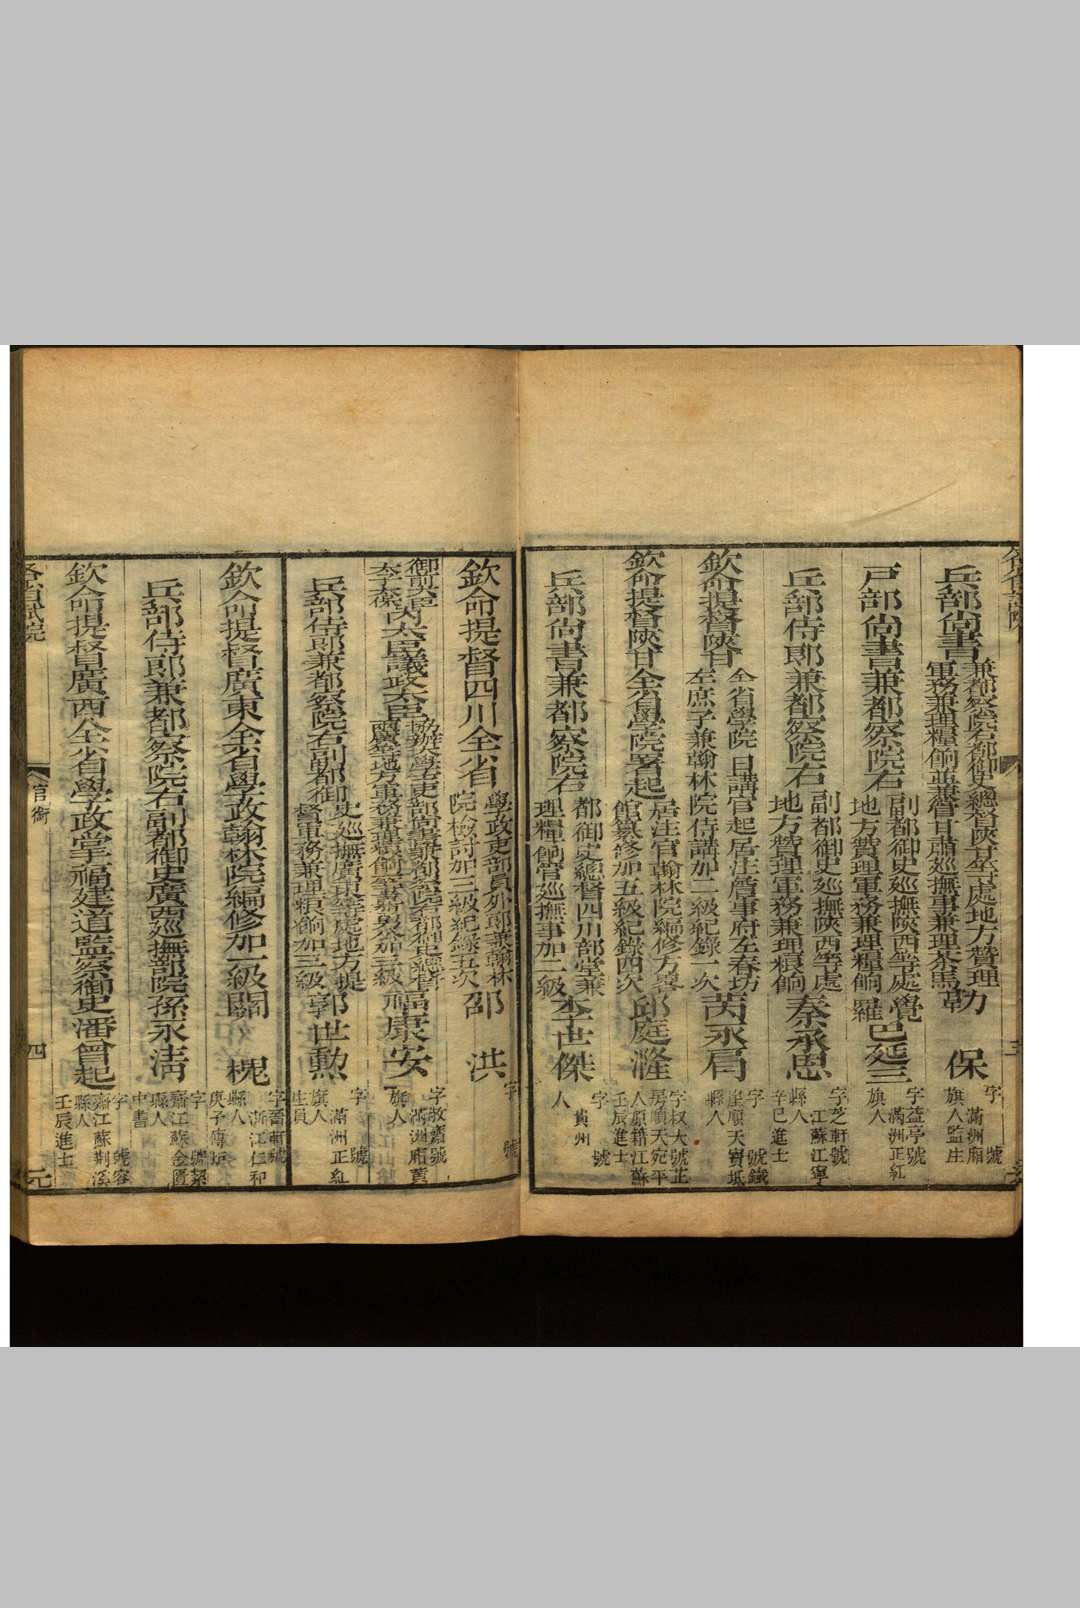 兵部尚書
兼都察院右都御史總督陝甘等處地方贊理
軍務兼理糧餉並兼管甘肅巡撫事兼理茶馬
勒 保
字 號
滿洲廂
旗人監生
戶部尚書兼都察院右
副都御史巡撫陝西等處
地方贊理軍務兼理糧餉
覺羅巴延三
字益亭號
滿洲正紅
旗人
兵部侍郎兼都察院右
副都御史巡撫陝西等處
地方贊理軍務兼理糧餉
秦承恩
字芝軒號
江蘇江寧
縣人
辛巳進士
欽命提督陝甘
全省學院日講官起居注詹事府左春坊
左庶子兼翰林院侍講加二級紀錄一次
芮永肩
字 號鐵
崖順天寶坻
縣人
欽命提督陝甘全省學院署起
居注官翰林院編修方畧
館纂修加五級紀錄四次
邱庭漋
字叔大號芷
房順天宛平
人原籍江蘇
壬辰進士
兵部尚書兼都察院右
都御史總督四川部堂兼
理糧餉管巡撫事加二級
李世傑
字 號
貴州
人
欽命提督四川全省
學政吏部員外郎兼翰林
院檢討加三級紀錄五次
邵 洪
字 號
御前大臣
太子太保
內大臣議政大臣
福康安
字敬齋號
滿洲廂黃
旗人
兵部侍郎兼都察院右副都御
史巡撫廣東等處地方提
督軍務兼理糧餉加三級
郭世勳
字 號
滿洲正紅
旗人
生員
欽命提督廣東全省學政翰林院編修加一級關 槐
字晉軒號
浙江仁和
縣人
庚子傳臚
兵部侍郎兼都察院右副都御史廣西巡撫部院孫永清
字 號
江蘇金匱
縣人
中書
欽命提督廣西全省學政掌福建道監察御史潘曾起
字 號容
齋江蘇荆溪
縣人
壬辰進士
官銜
四
元